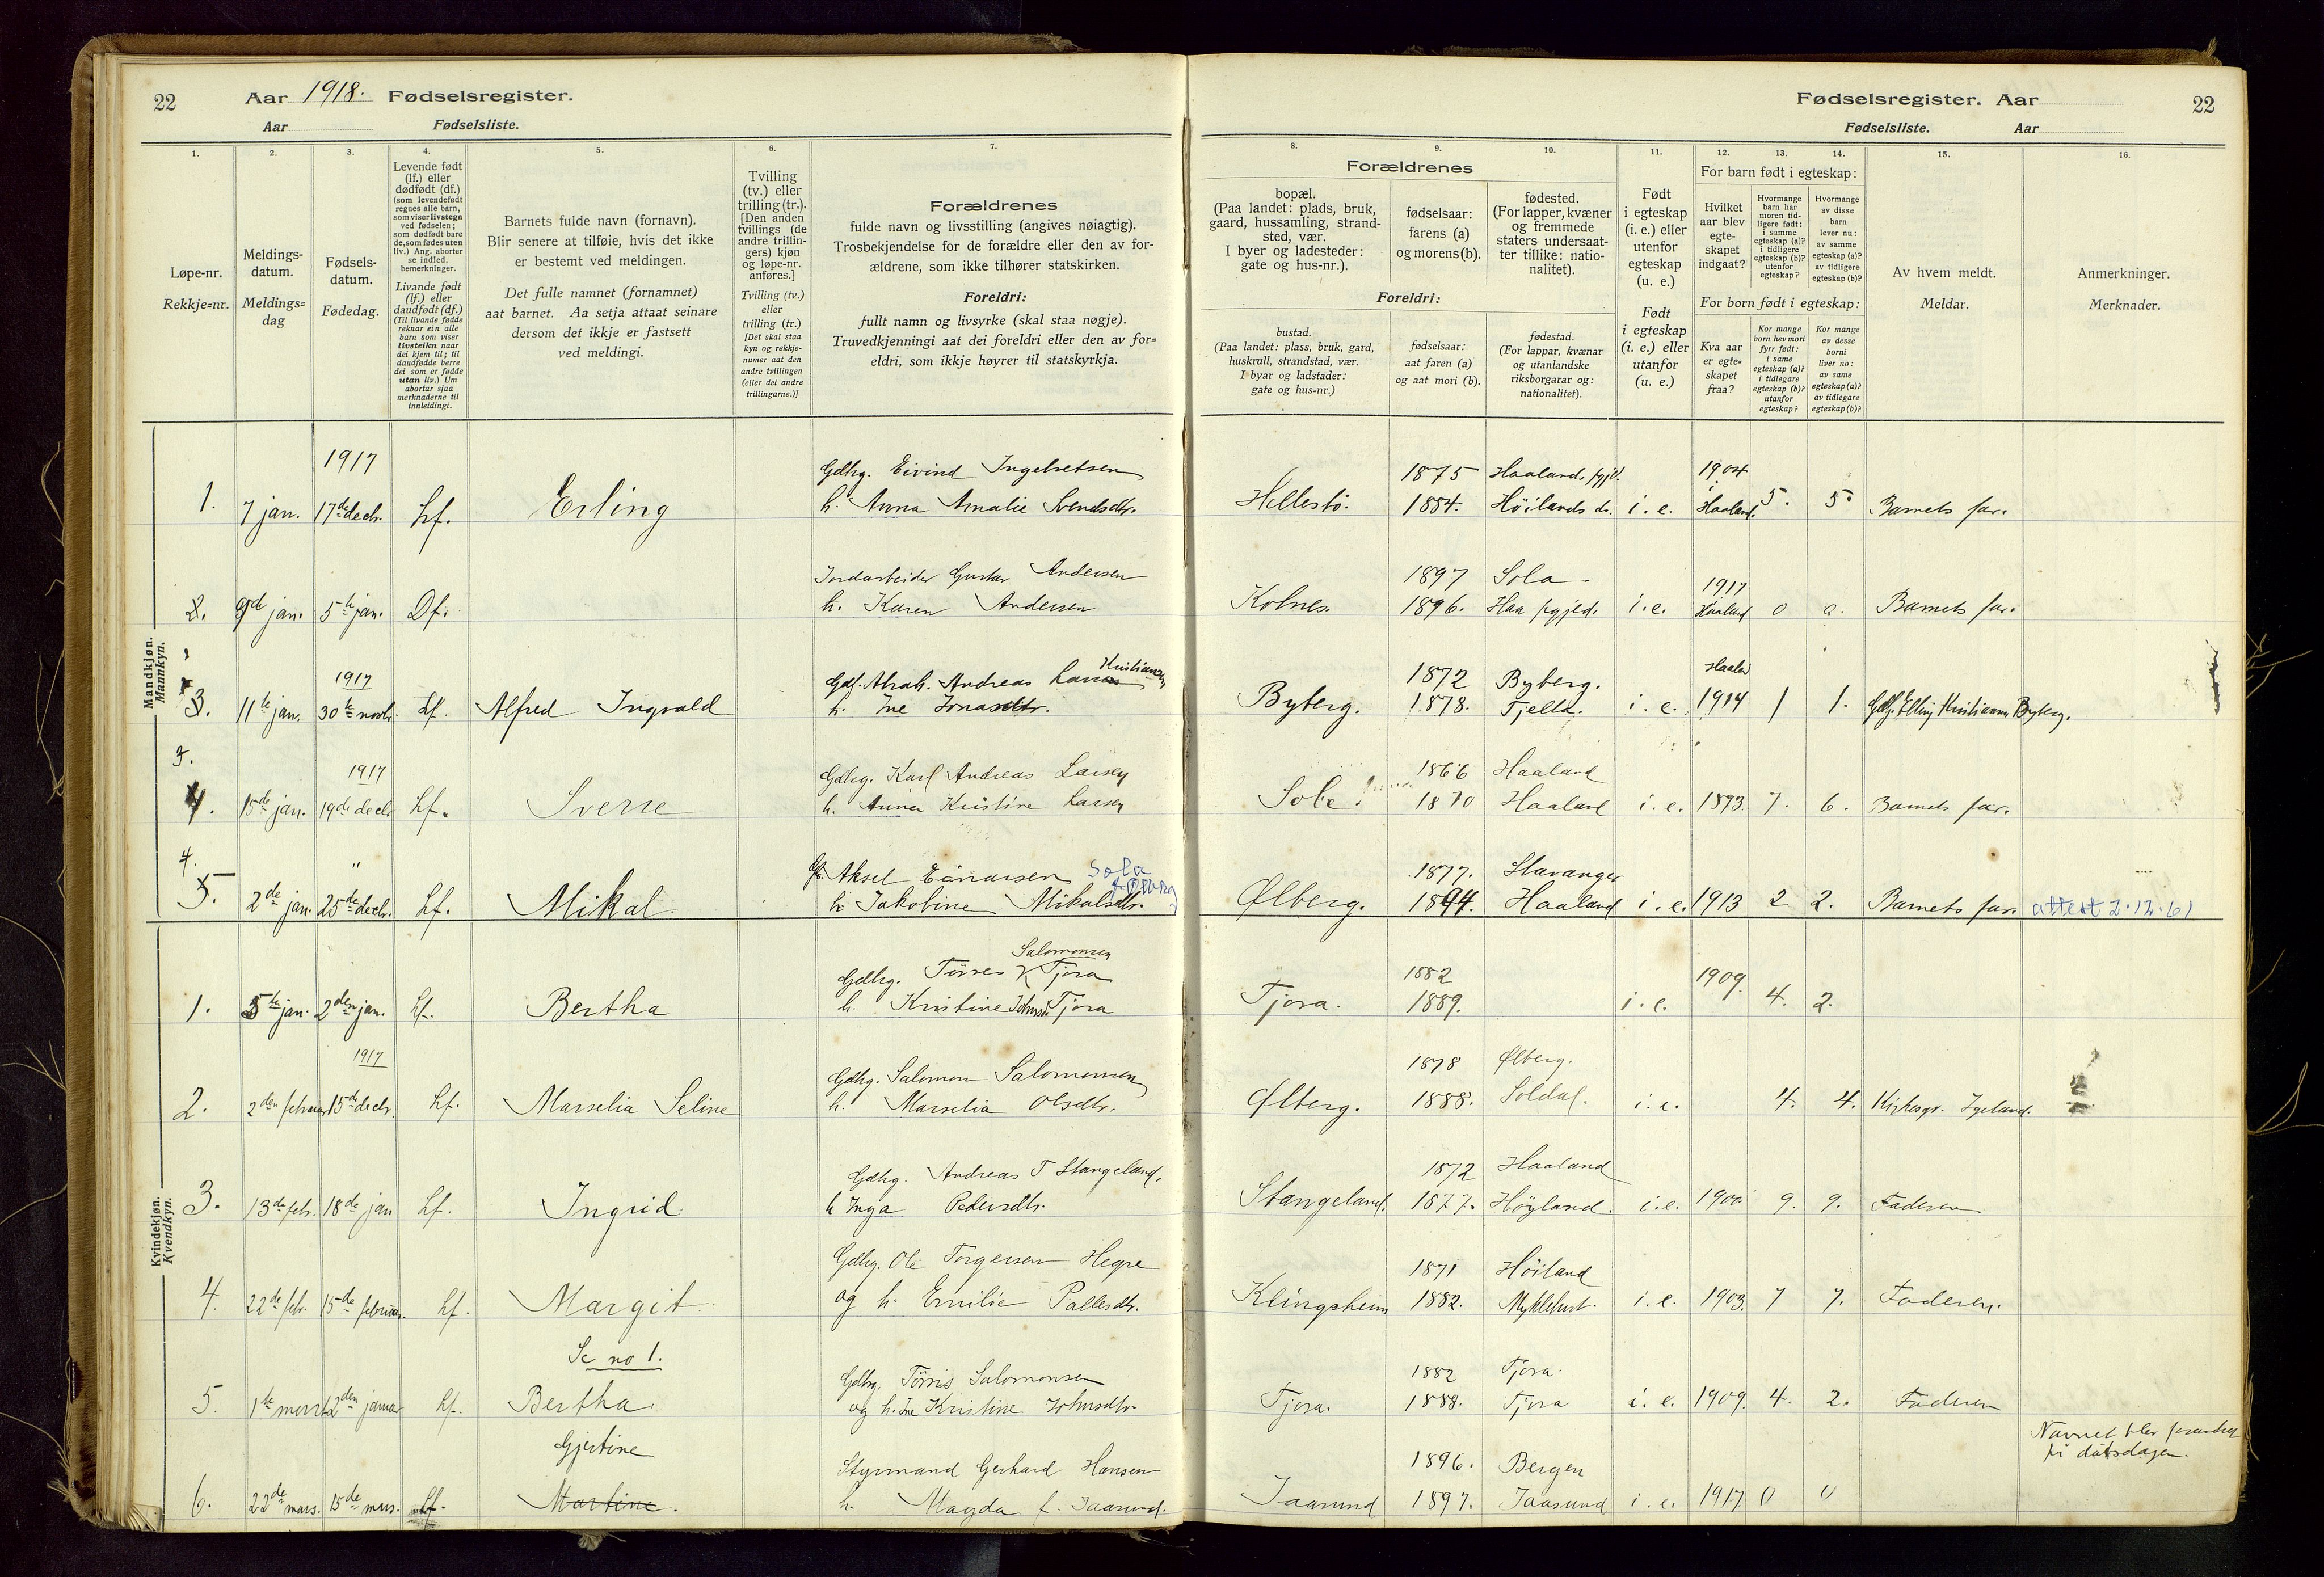 22 Aar 1918. Fødselsregister.
Aar Fødselsliste.
Fødselsregister. Aar 22
Fødselsliste. Aar
1. 2. 3. 4. 5. 6. 7. 8. 9. 10. 11. 12. 13. 14. 15. 16.
Løpe-nr.
Rekkje=nr.
Meldings-
datum.
Meldings=
dag
Fødsels-
datum.
Fødedag.
Levende født
(lf.) eller
dødfødt (df.)
(som levendefødt
regnes alle barn,
som viser livstegn
ved fødselen;
som dødfødt bare
de, som fødes uten
liv.) Ang. aborter
se indled.
bemerkninger.
Livande født
(lf.) eller
daudfødt (df.)
(Til livande fødde
reknar ein alle
barn som viser
livsteikn naar
dei kjem til; til
daudfødde berre
dei som er fødde
utan liv.) Um
abortar sjaa
merknaderne til
innleidingi.
Barnets fulde navn (fornavn).
Blir senere at tilføie, hvis det ikke
er bestemt ved meldingen.
Det fulle namnet (fornamnet)
aat barnet. Aa setja attaat seinare
dersom det ikkje er fastsett
ved meldingi.
Tvilling
(tv.) eller
trilling (tr.).
[Den anden
tvillings (de
andre trillin-
gers) kjøn
og løpe-nr.
anføres.]
Tvilling (tv.)
eller
trilling (tr.)
[Det skal staa
kyn og rekkje-
numer aat den
andre tvillingen
(eller dei andre
trillingarne.)]
Forældrenes
fulde navn og livsstilling (angives nøiagtig).
Trosbekjendelse for de forældre eller den av for-
ældrene, som ikke tilhører statskirken.
Foreldri:
fullt namn og livsyrke (skal staa nøgje).
Truvedkjenningi aat dei foreldri eller den av for=
eldri, som ikkje høyrer til statskyrkja.
Forældrenes
bopæl.
(Paa landet: plads, bruk,
gaard, hussamling, strand-
sted, vær.
I byer og ladesteder:
gate og hus-nr.).
fødselsaar:
farens (a)
og morens (b).
fødested.
(For lapper, kvæner
og fremmede
staters undersaat-
ter tillike: natio-
nalitet).
Foreldri:
bustad.
(Paa landet: plass, bruk, gard,
huskrull, strandstad, vær.
I byar og ladstader:
gate og hus=nr.)
fødselsaar:
aat faren (a)
og aat mori (b).
fødestad.
(For lappar, kvænar
og utanlandske
riksborgarar og:
nationalitet).
Født
i egteskap
(i. e.) eller
utenfor
egteskap
(u. e.)
Født
i egteskap
(i. e.) eller
utanfor
(u. e.)
For barn født i egteskap:
Hvilket
aar blev
egte-
skapet
indgaat?
Hvormange
barn har
moren tid-
ligere født:
i samme
egteskap (a)?
i tidligere
egteskap (b)?
utenfor
egteskap?
Hvormange
av disse
barn
lever nu:
av samme
egteskap (a)?
av tidligere
egteskap (b)?
For born født i egteskap:
Kva aar
er egte=
skapet
fraa?
Kor mange
barn hev mori
fyrr født:
i same
egteskap (a)?
i tidlegare
egteskap (b)?
utanfor
egteskap?
Kor mange
av desse
borni
liver no:
av same
egteskap (a)?
av tidlegare
egteskap (b)?
Av hvem meldt.
Meldar.
Anmerkninger.
Merknader.
Mandkjøn.
Mannkyn.
1917 Gdbrg. Eivind Ingebretsen 1875 Haalands pgjd. 1904
1. 7 jan. 17de decbr. Lf. Erling h. Anna Amalie Svendsdtr. Hellestö. 1884. Höilands do. i. e. Haaland. 5. 5. Barnets far.
Jordarbeider Gustav Andersen 1897 Sola 1917
2. 9de jan. 5te jan. Df. h. Karen Andersen Kolnes. 1896. Haa pgjed. i. e. Haaland 0 0. Barnets far.
1917 Gdl. Abrah. Andreas Kristiansen 1872 Byberg. Haaland
3. 11te jan. 30te novbr. Lf. Alfred Ingvald h. Ine Jonasdtr. Byberg. 1878. Tjelta. i. e. 1914 1 1. Gdbr. Elling Kristiansen Byberg.
3.
1917 Gdbrg. Karl Andreas Larsen 1866 Haaland
4. 15de jan. 19de decbr Lf. Sverre h. Anna Kristine Larsen Sole. 1870 Haaland i. e. 1893. 7. 6. Barnets far.
4. " Gb. Aksel Einarsen Sola f. Ølberg 1877. Stavanger
5. 2de jan. 25de decbr. Lf. Mikal h. Jakobine Mikalsdtr. Ølberg. 1894. Haaland i. e. 1913 2 2. Barnets far. attest 2.12.61
Kvindekjøn.
Kvendkyn.
Salomonsen
Gdbrg. Törres Tjora 1882 1909.
1. 5te jan. 2den jan. Lf. Bertha h. Kristine Johnsd. Tjora Tjora. 1889. i. e. 4. 2.
1917 Gdbrg. Salomon Salomonsen 1878 Ølberg.
2. 2den februar 15de decbr. Lf. Marselia Seline h. Marselia Olsdtr. Ølberg. 1888. Soldal. i. e. 4. 4. Kirkesgr. Igeland.
Gdbrg. Andreas T Stangeland. 1872 Haaland
3. 13de febr. 18de jan Lf. Ingrid h Inga Pedersdtr. Stangeland. 1877. Höyland. i. e. 1900 9. 9. Faderen
Gdbrg. Ole Torgersen Hegre 1871 Höiland
4. 22de feb. 15de februar. Lf. Margit og h. Emilie Pallesdtr. Klingsheim 1882. Myklebust. i. e. 1903. 7 7. Faderen.
Se no 1. Gdbrg. Törris Salomonsen 1882 Tjora.
5. 1ste marts 2den januar Lf. Bertha. og h. Ine Kristine Johnsdtr. Tjora. 1888. Tjora i. e. 1909. 4. 2. Faderen
Gjertine Styrmand Gerhard Hansen 1896. Bergen Navnet blev forandret
på dåbsdagen.
6. 22de mars. 15de mars. Lf. Martine. h. Magda f. Jaasund. Jaasund 1897. Jaasund i. e. 1917. 0 0